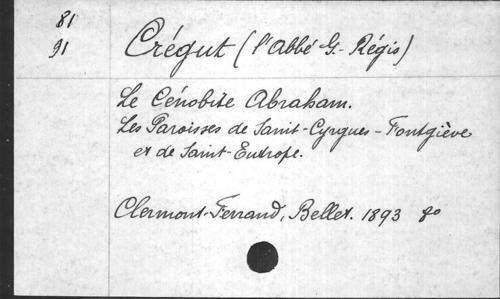 81
91
Crégut (l'abbé G.-Régis)
Le Cénobite Abraham.
Les Paroisses de Saint-Cyrgues-Fontgiève
et de Saint-Eutrope.
Clermont-Ferrand, Bellet. 1893 8o